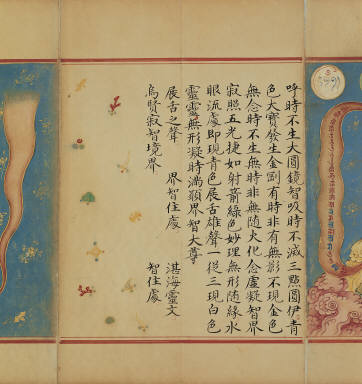 呼時不生大圓鏡智吸時不滅三點圓伊青
色大寶發生金剛有時非有無影不現金色
無念時不生無時非無隨大化念虛凝智界
寂照五光捷如射箭綠色妙理無形隨緣水
眼流處即現青色展舌雄聲一從三現白色
靈靈無形凝時滿顯界智大尊
展舌之聲 界智住處 湛海靈文
烏賢寂智境界 智住處